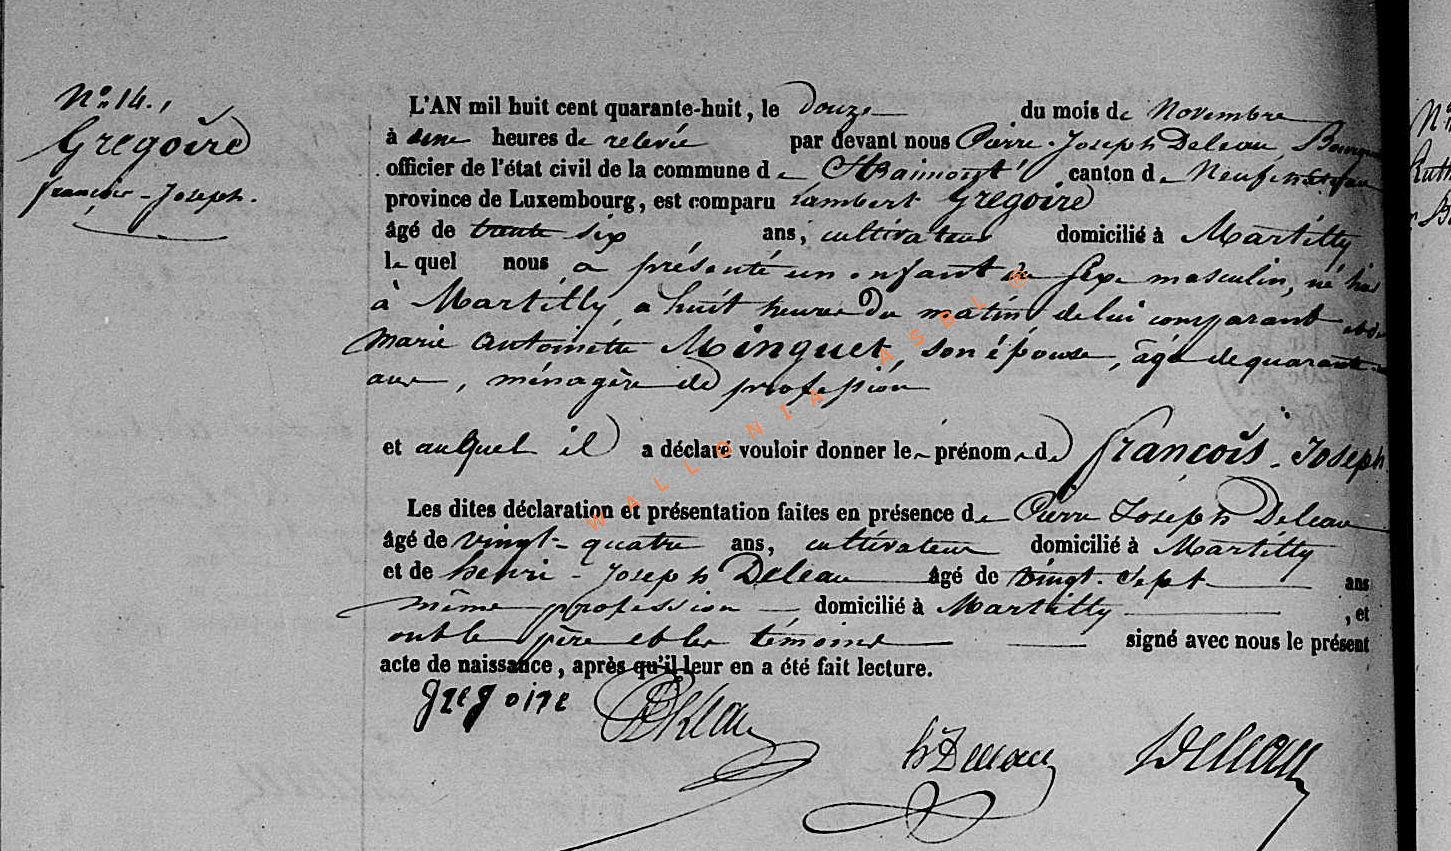 N° 14.
Gregoire
françois-Joseph.
L'AN mil huit cent quarante-huit, le Douze du mois de Novembre
à une heures de relevée par devant nous Pierre-Joseph Deleau, Bourgm
officier de l'état civil de la commune de canton de Neufchateau
province de Luxembourg, est comparu Lambert Gregoire
âgé de trente six ans, cultivateur domicilié à Martilly
le quel nous a présenté un enfant de sexe masculin, né hier
à Martilly, a huit heures du matin de lui comparant et de
Marie Antoinette Minguet, son épouse, âgée de quarante
ans, ménagère de profession
et auquel il a déclaré vouloir donner les prénoms de françois-Joseph
Les dites déclaration et présentation faites en présence de Pierre Joseph Deleau
âgé de vingt-quatre ans, cultivateur domicilié à Martilly
et de henri-Joseph Deleau âgé de vingt-sept ans
même profession domicilié à Martilly, et
ont le père et les témoins signé avec nous le présent
acte de naissance, après qu'il leur en a été fait lecture.
gregoire Deleau
h Deleau Deleau
WALLONIA ASBL ©
N°
Ruth